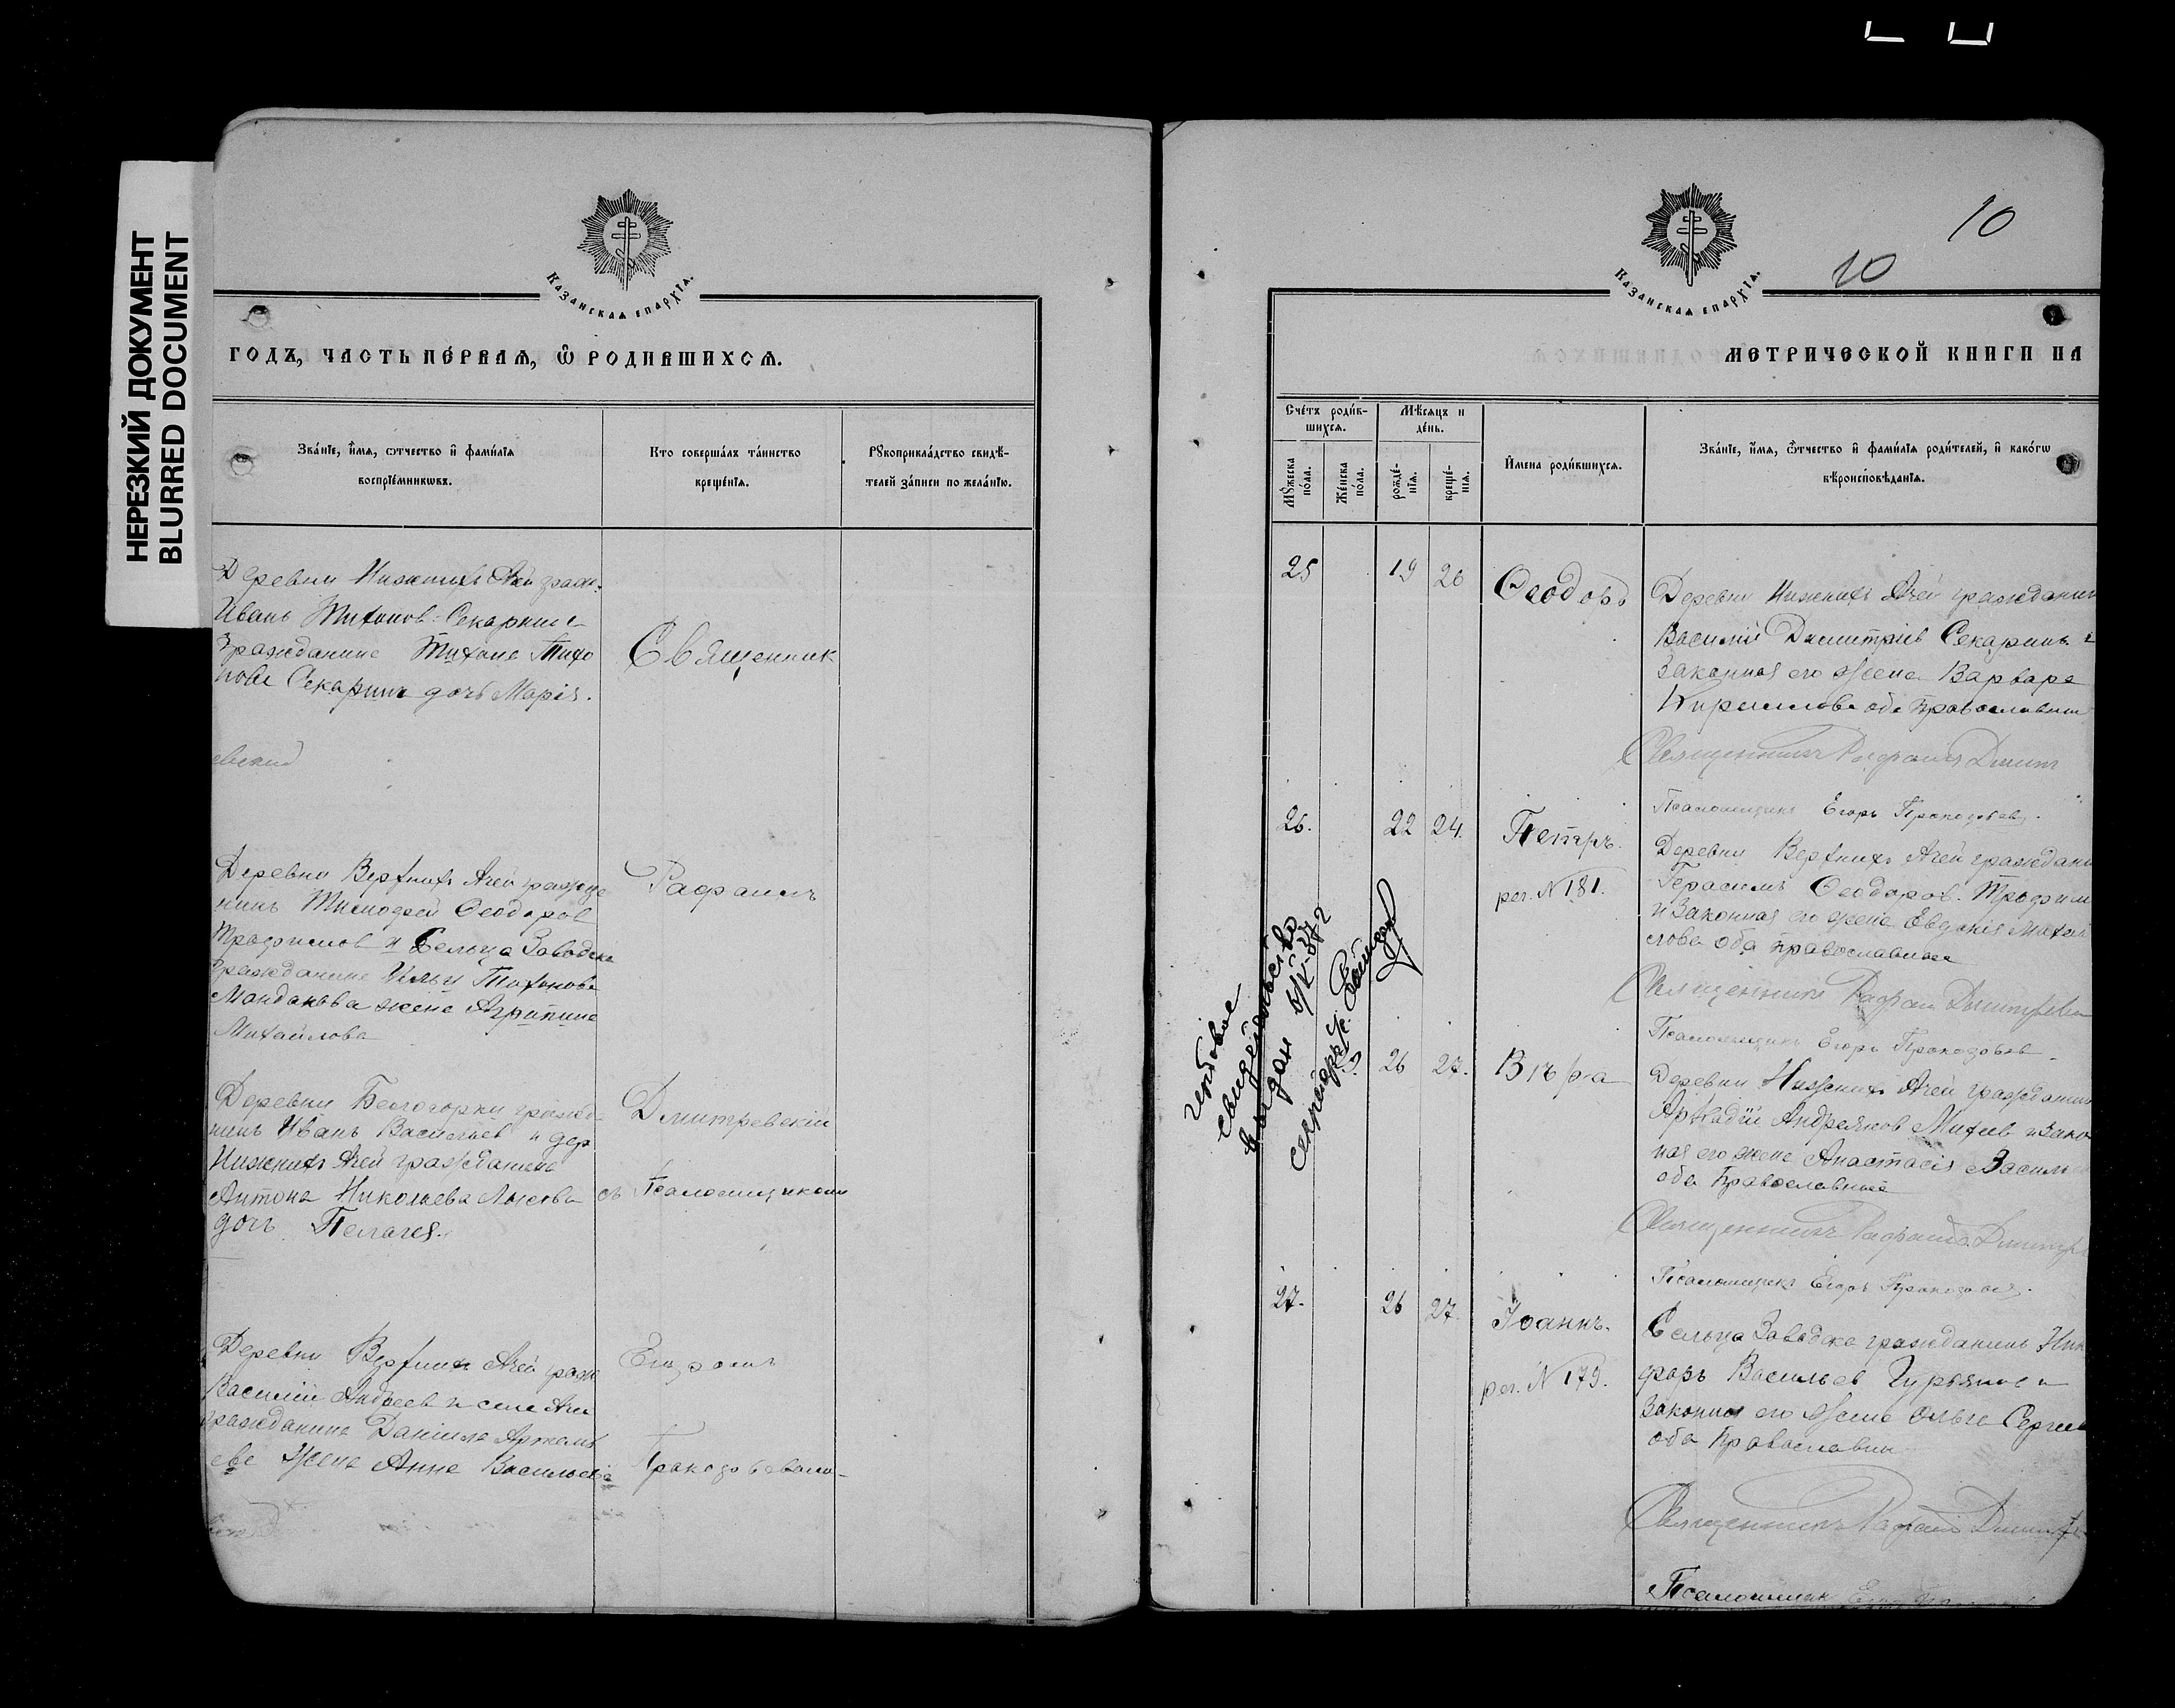 НЕРЕЗКИЙ ДОКУМЕНТ
BLURRED DOCUMENT
КАЗАНСКАЯ ЕПАРХІА.
ГОДЪ, ЧАСТЬ ПЕ́РВАЯ, Ѿ РОДИВШИХСЯ.
Зва́нїе, и҆́мя, ѻ҆́тчество и҆ фами́лїя
воспрїе́мникѡвъ.
Кто соверша́лъ та́инство
креще́нїя.
Рꙋкоприкла́дство свидѣ́-
телей за́писи по жела́нїю.
Деревни Нижнихъ Ачей граж.
Иванъ Тихонов Секарин и
гражданина Тихона Тихо
нова Секарин дочь Марія.
Священник
евский
Деревни Верхнихъ Ачей гражда
нинъ Тимофей Ѳеодоров
Трофимов и Сельца Заводска
гражданина Ильи Тихонова
Манданова жена Агрипина
Михайлова
Рафаилъ
Деревни Белогорки гражда
нинъ Иванъ Васильев и дер
Нижнихъ Ачей гражданина
Антона Николаева Лысова
дочь Пелагея.
Дмитревскій
съ Псаломщиком
Деревни Верхнихъ Ачей граж
Василий Андреев и села Ачи
гражданина Даниила Артемь
ева жена Анна Васильева
Егором
Прокофьевым
10
10
КАЗАНСКАЯ ЕПАРХІА.
МЕТРИЧЕСКОЙ КНИГИ НА
Сче́тъ роди́в-
шихся.
Мѣ́сяцъ и
де́нь.
Мꙋ́жеска
по́ла.
Же́нска
по́ла.
рожде́-
нїя.
креще́-
нїя.
И҆мена̀ роди́вшихся.
Зва́нїе, и҆́мя, ѻ҆́тчество и҆ фами́лїя роди́телей, и҆ како́гѡ
вѣроисповѣ́данїя.
25 19 26 Ѳеодоръ
Деревни Нижнихъ Ачей гражданин
Василий Димитріев Секаринъ и
законная его жена Варвара
Кириллова оба православные
Священникъ Рафаилъ Димит
Псаломщикъ Егоръ Прокофьев.
26. 22 24. Петръ.
рег. N 181.
Деревни Верхнихъ Ачей граждани
Герасимъ Ѳеодоров. Трофим
и законная его жена Евдокія Михай
лова оба православные
Священникъ Рафаил Димитревск
Псаломщикъ Егоръ Прокофьев.
гербовое
свидетельство
выдан
секретарь
26 27. Вѣра
Деревни Нижнихъ Ачей гражданин
Аркадій Андреянов Михеев и закон
ная его жена Анастасія Василь
оба Православные
Священникъ Рафаилъ Димитр
Псаломщикъ Егоръ Прокофьев.
27. 26 27. Іоаннъ.
рег. N 179.
Сельца Заводска гражданинъ Ник
форъ Васильев Гурьянов и
законная его жена Ольга Сергеев
оба православны
Священникъ Рафаил Димитр
Псаломщик